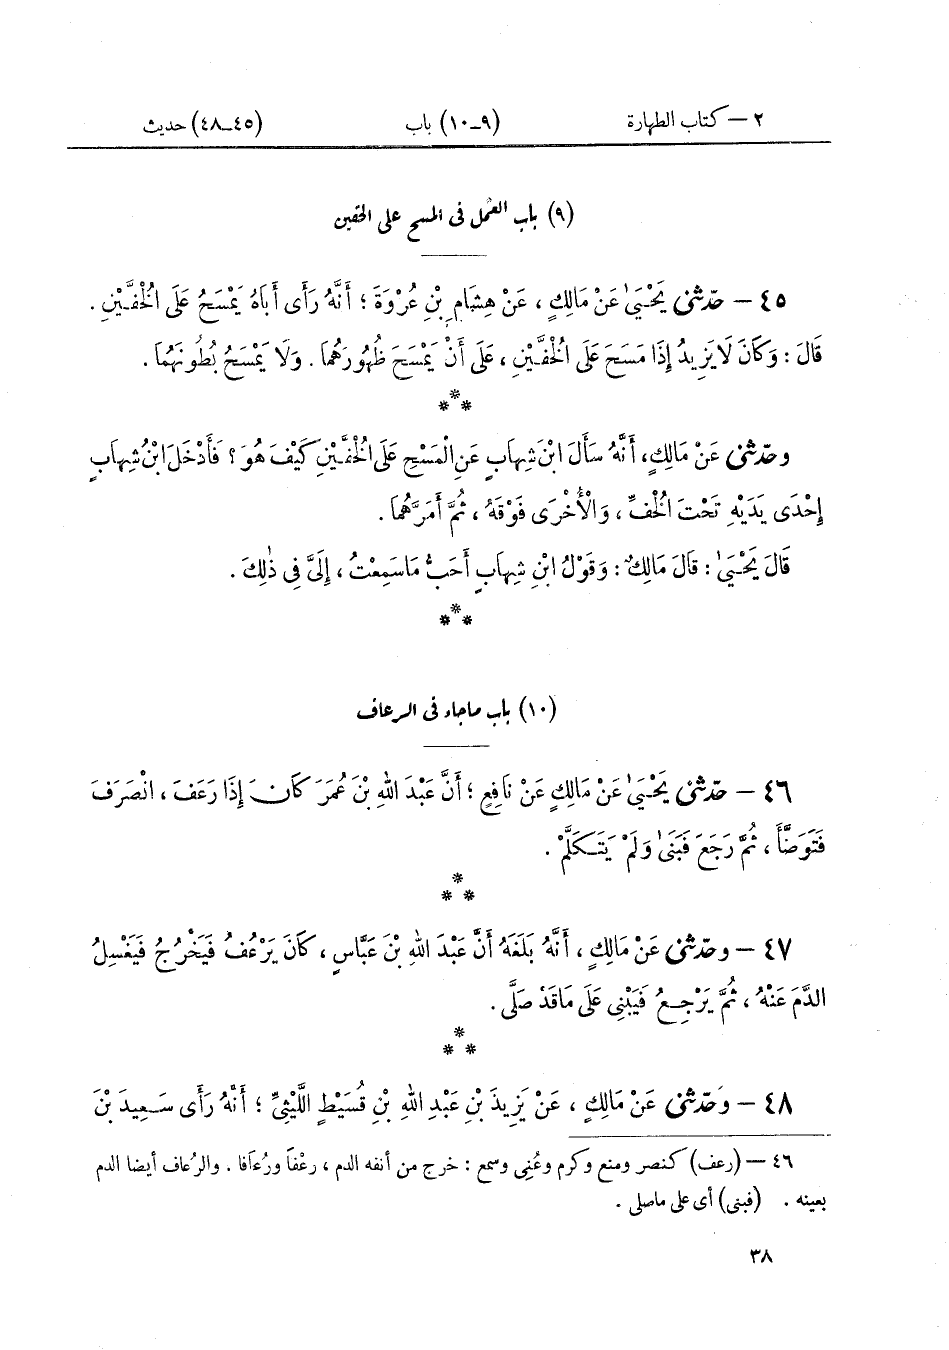 ٢ – كتاب الطهارة (٩-١٠) باب (٤٥-٤٨) حديث
(٩) باب العمل فى المسح على الخفين
٤٥ – حدّثنى يَحْيَىٰ عَنْ مَالِكٍ ، عَنْ هِشَامِ بْنِ عُرْوَةَ ؛ أَنَّهُ رَأَى أَبَاهُ يَمْسَحُ عَلَى الْخُفَّيْنِ .
قَالَ : وَكَانَ لَا يَزِيدُ إِذَا مَسَحَ عَلَى الْخُفَّيْنِ ، عَلَى أَنْ يَمْسَحَ ظُهُورَهُمَا . وَلَا يَمْسَحُ بُطُونَهُمَا .
***
وحدّثنى عَنْ مَالِكٍ، أَنَّهُ سَأَلَ ابْنَ شِهَابٍ عَنِ الْمَسْحِ عَلَى الْخُفَّيْنِ كَيْفَ هُوَ ؟ فَأَدْخَلَ ابْنُ شِهَابٍ
إِحْدَى يَدَيْهِ تَحْتَ الْخُفِّ ، وَالْأُخْرَى فَوْقَهُ ، ثُمَّ أَمَرَّهُمَا .
قَالَ يَحْيَىٰ : قَالَ مَالِكٌ : وَقَوْلُ ابْنِ شِهَابٍ أَحَبُّ مَا سَمِعْتُ ، إِلَىَّ فِى ذٰلِكَ .
***
(١٠) باب ماجاء فى الرعاف
٤٦ – حدّثنى يَحْيَىٰ عَنْ مَالِكٍ عَنْ نَافِعٍ ؛ أَنَّ عَبْدَ اللهِ بْنَ عُمَرَ كَانَ إِذَا رَعَفَ ، انْصَرَفَ
فَتَوَضَّأَ ، ثُمَّ رَجَعَ فَبَنَىٰ وَلَمْ يَتَكَلَّمْ .
***
٤٧ – وحدّثنى عَنْ مَالِكٍ ، أَنَّهُ بَلَغَهُ أَنَّ عَبْدَ اللهِ بْنَ عَبَّاسٍ ، كَانَ يَرْعُفُ فَيَخْرُجُ فَيَغْسِلُ
الدَّمَ عَنْهُ ، ثُمَّ يَرْجِعُ فَيَبْنِى عَلَى مَاقَدْ صَلَّى .
***
٤٨ – وَحدّثنى عَنْ مَالِكٍ ، عَنْ يَزِيدَ بْنِ عَبْدِ اللهِ بْنِ قُسَيْطٍ اللَّيْثِىِّ ؛ أَنَّهُ رَأَى سَعِيدَ بْنَ
٤٦ – (رعف) كنصر ومنع وكرم وعُنِى وسمع : خرج من أنفه الدم ، رعْفاً ورُعافا . والرُعاف أيضا الدم
بعينه . (فبنى) أى على ماصلى .
٣٨